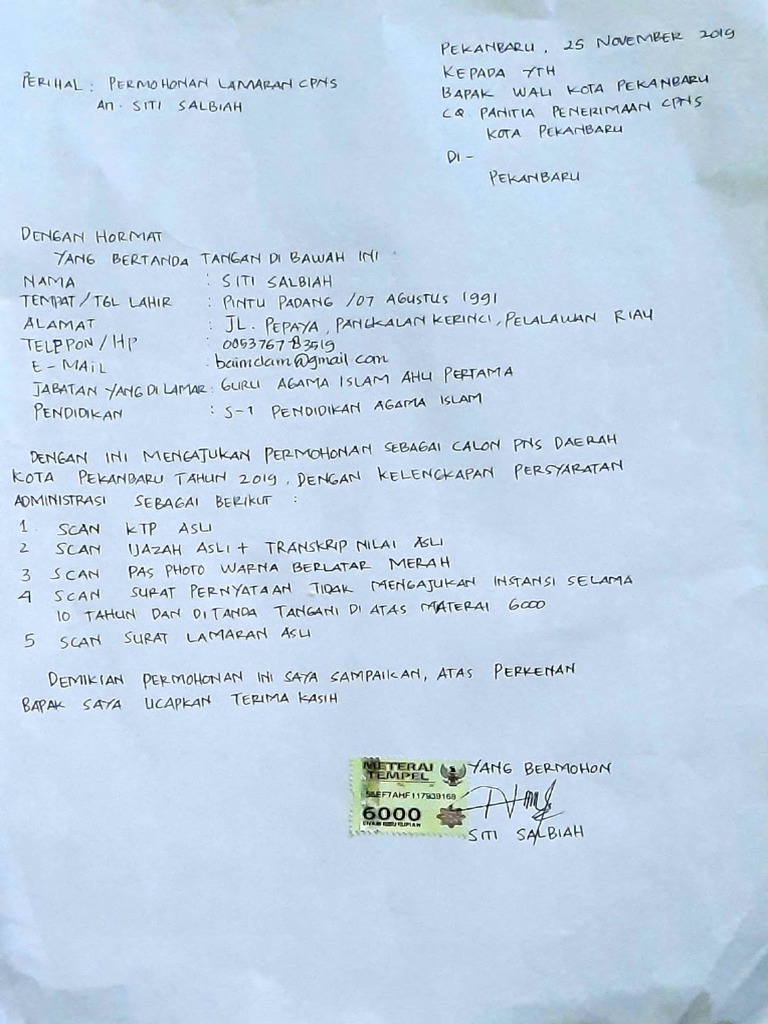 PEKANBARU, 25 NOVEMBER 2019
PERIHAL : PERMOHONAN LAMARAN CPNS
An. SITI SALBIAH
KEPADA YTH
BAPAK WALI KOTA PEKANBARU
CQ PANITIA PENERIMAAN CPNS
KOTA PEKANBARU
DI -
PEKANBARU
DENGAN HORMAT
YANG BERTANDA TANGAN DI BAWAH INI :
NAMA : SITI SALBIAH
TEMPAT/TGL LAHIR : PINTU PADANG /07 AGUSTUS 1991
ALAMAT : JL. PEPAYA, PANGKALAN KERINCI, PELALAWAN RIAU
TELEPON/HP :
E-MAIL : baimdam@gmail com
JABATAN YANG DI LAMAR : GURU AGAMA ISLAM AHLI PERTAMA
PENDIDIKAN : S-1 PENDIDIKAN AGAMA ISLAM
DENGAN INI MENGAJUKAN PERMOHONAN SEBAGAI CALON PNS DAERAH
KOTA PEKANBARU TAHUN 2019, DENGAN KELENGKAPAN PERSYARATAN
ADMINISTRASI SEBAGAI BERIKUT :
1 SCAN KTP ASLI
2 SCAN IJAZAH ASLI + TRANSKRIP NILAI ASLI
3 SCAN PAS PHOTO WARNA BERLATAR MERAH
4 SCAN SURAT PERNYATAAN TIDAK MENGAJUKAN INSTANSI SELAMA
10 TAHUN DAN DI TANDA TANGANI DI ATAS MATERAI 6000
5 SCAN SURAT LAMARAN ASLI
DEMIKIAN PERMOHONAN INI SAYA SAMPAIKAN, ATAS PERKENAN
BAPAK SAYA UCAPKAN TERIMA KASIH
YANG BERMOHON
METERAI
TEMPEL
6000
ENAM RIBU RUPIAH
SITI SALBIAH